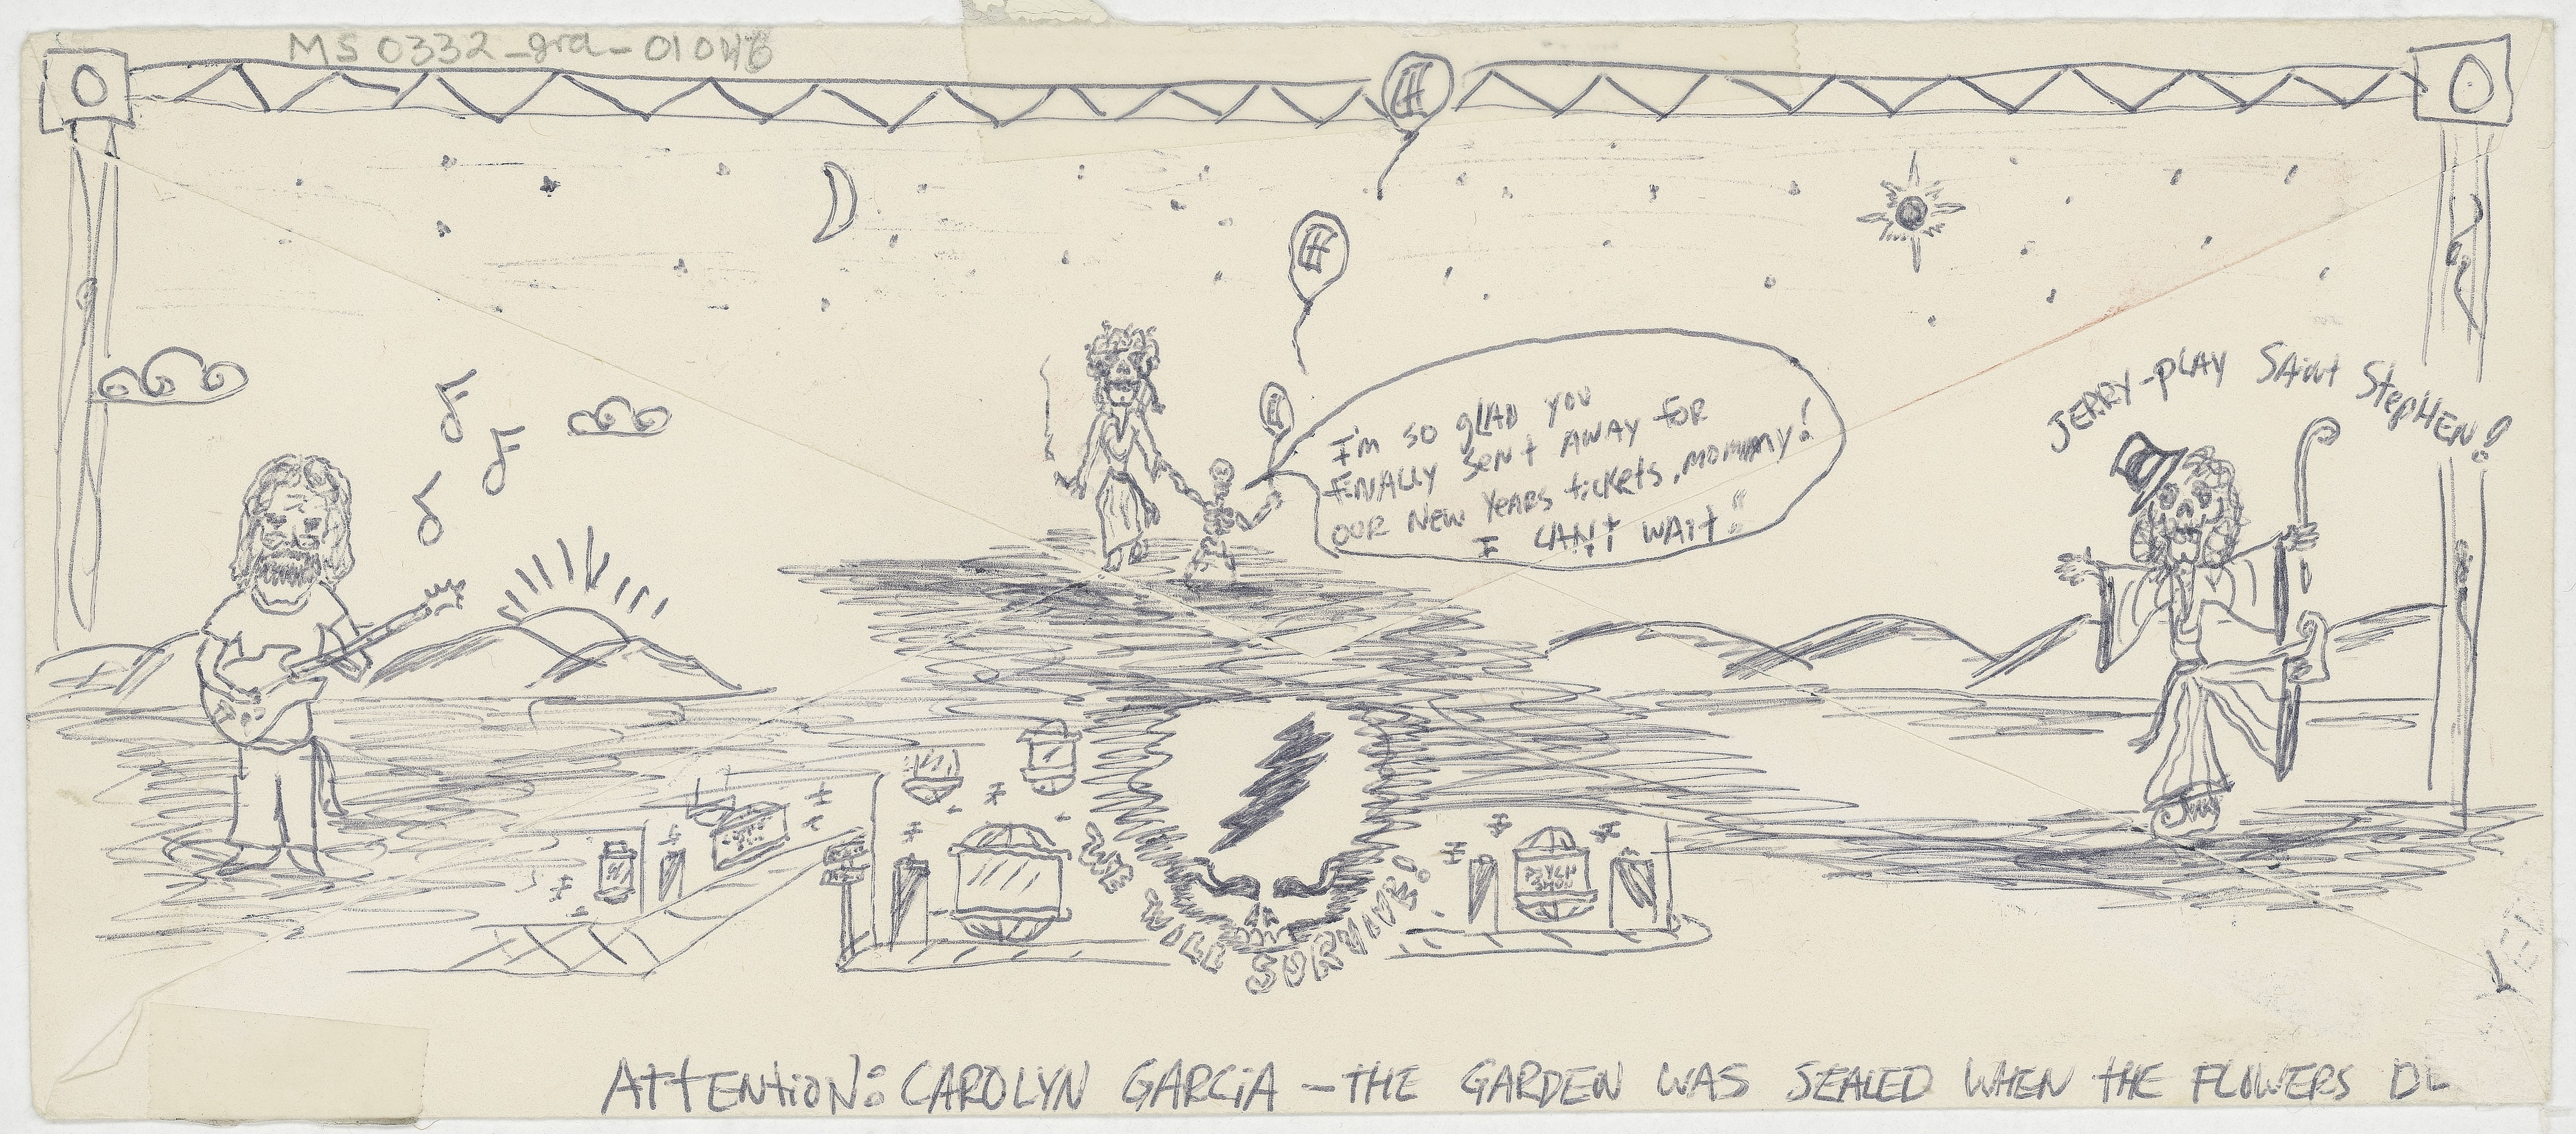 MS 0332_gra_01046
JERRY-PLAY SAiNt StepHEN!
I'm so gLAD YOU
FiNALLY SENt AWAY FOR
OUR NEW YEARS tickets, MOMMMY!
I CAN't WAit!!
PSYCH
WE WiLL SURViVE!
AttENtiON: CAROLYN GARCiA - THE GARDEN WAS SEALED WHEN tHE FLOWERS